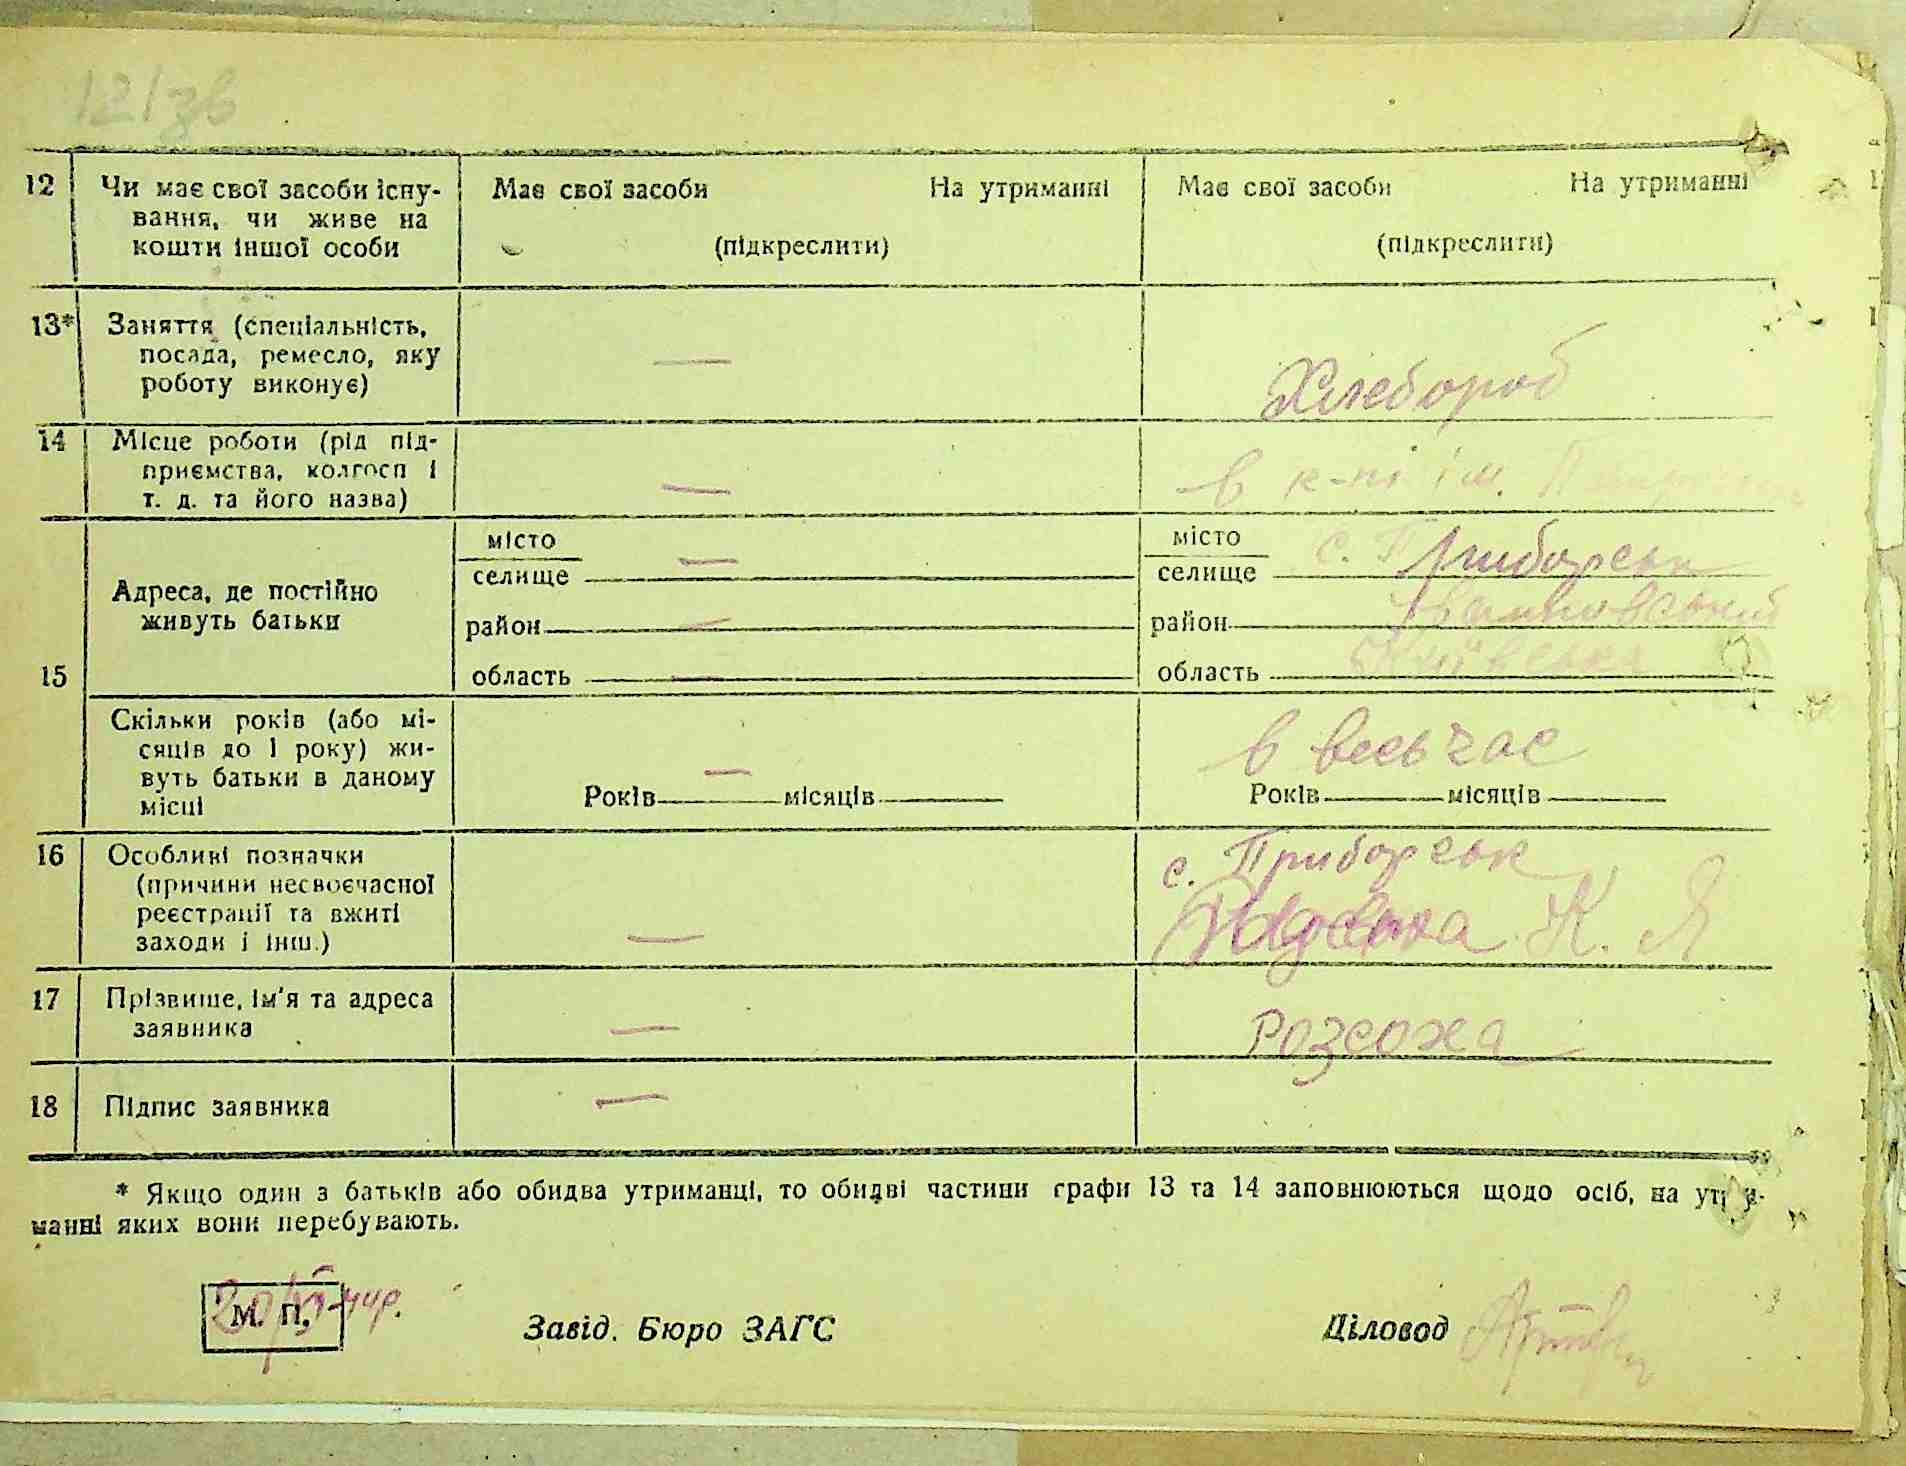 121зв
12 Чи має свої засоби існу- Має свої засоби На утриманні Має свої засоби На утриманні
вання, чи живе на
кошти іншої особи (підкреслити) (підкреслити)
13* Заняття (спеціальність,
посада, ремесло, яку —
роботу виконує) Хлебороб
14 Місце роботи (рід під-
приємства, колгосп і — в к-пі ім.
т. д. та його назва)
місто — місто с. Приборськ
селище селище
Адреса, де постійно
живуть батьки район — район Івановський
15 область — область Київська
Скільки років (або мі-
сяців до 1 року) жи- в весь час
вуть батьки в даному —
місці Років місяців Років місяців
16 Особливі позначки с. Приборськ
(причини несвоєчасної
реєстрації та вжиті К. Я
заходи і інш.) —
17 Прізвише, ім'я та адреса
заявника — Розсоха
18 Підпис заявника —
* Якщо один з батьків або обидва утриманці, то обидві частини графи 13 та 14 заповнюються щодо осіб, на утри-
манні яких вони перебувають.
М. П. 20/VI-44р.
Завід. Бюро ЗАГС Діловод